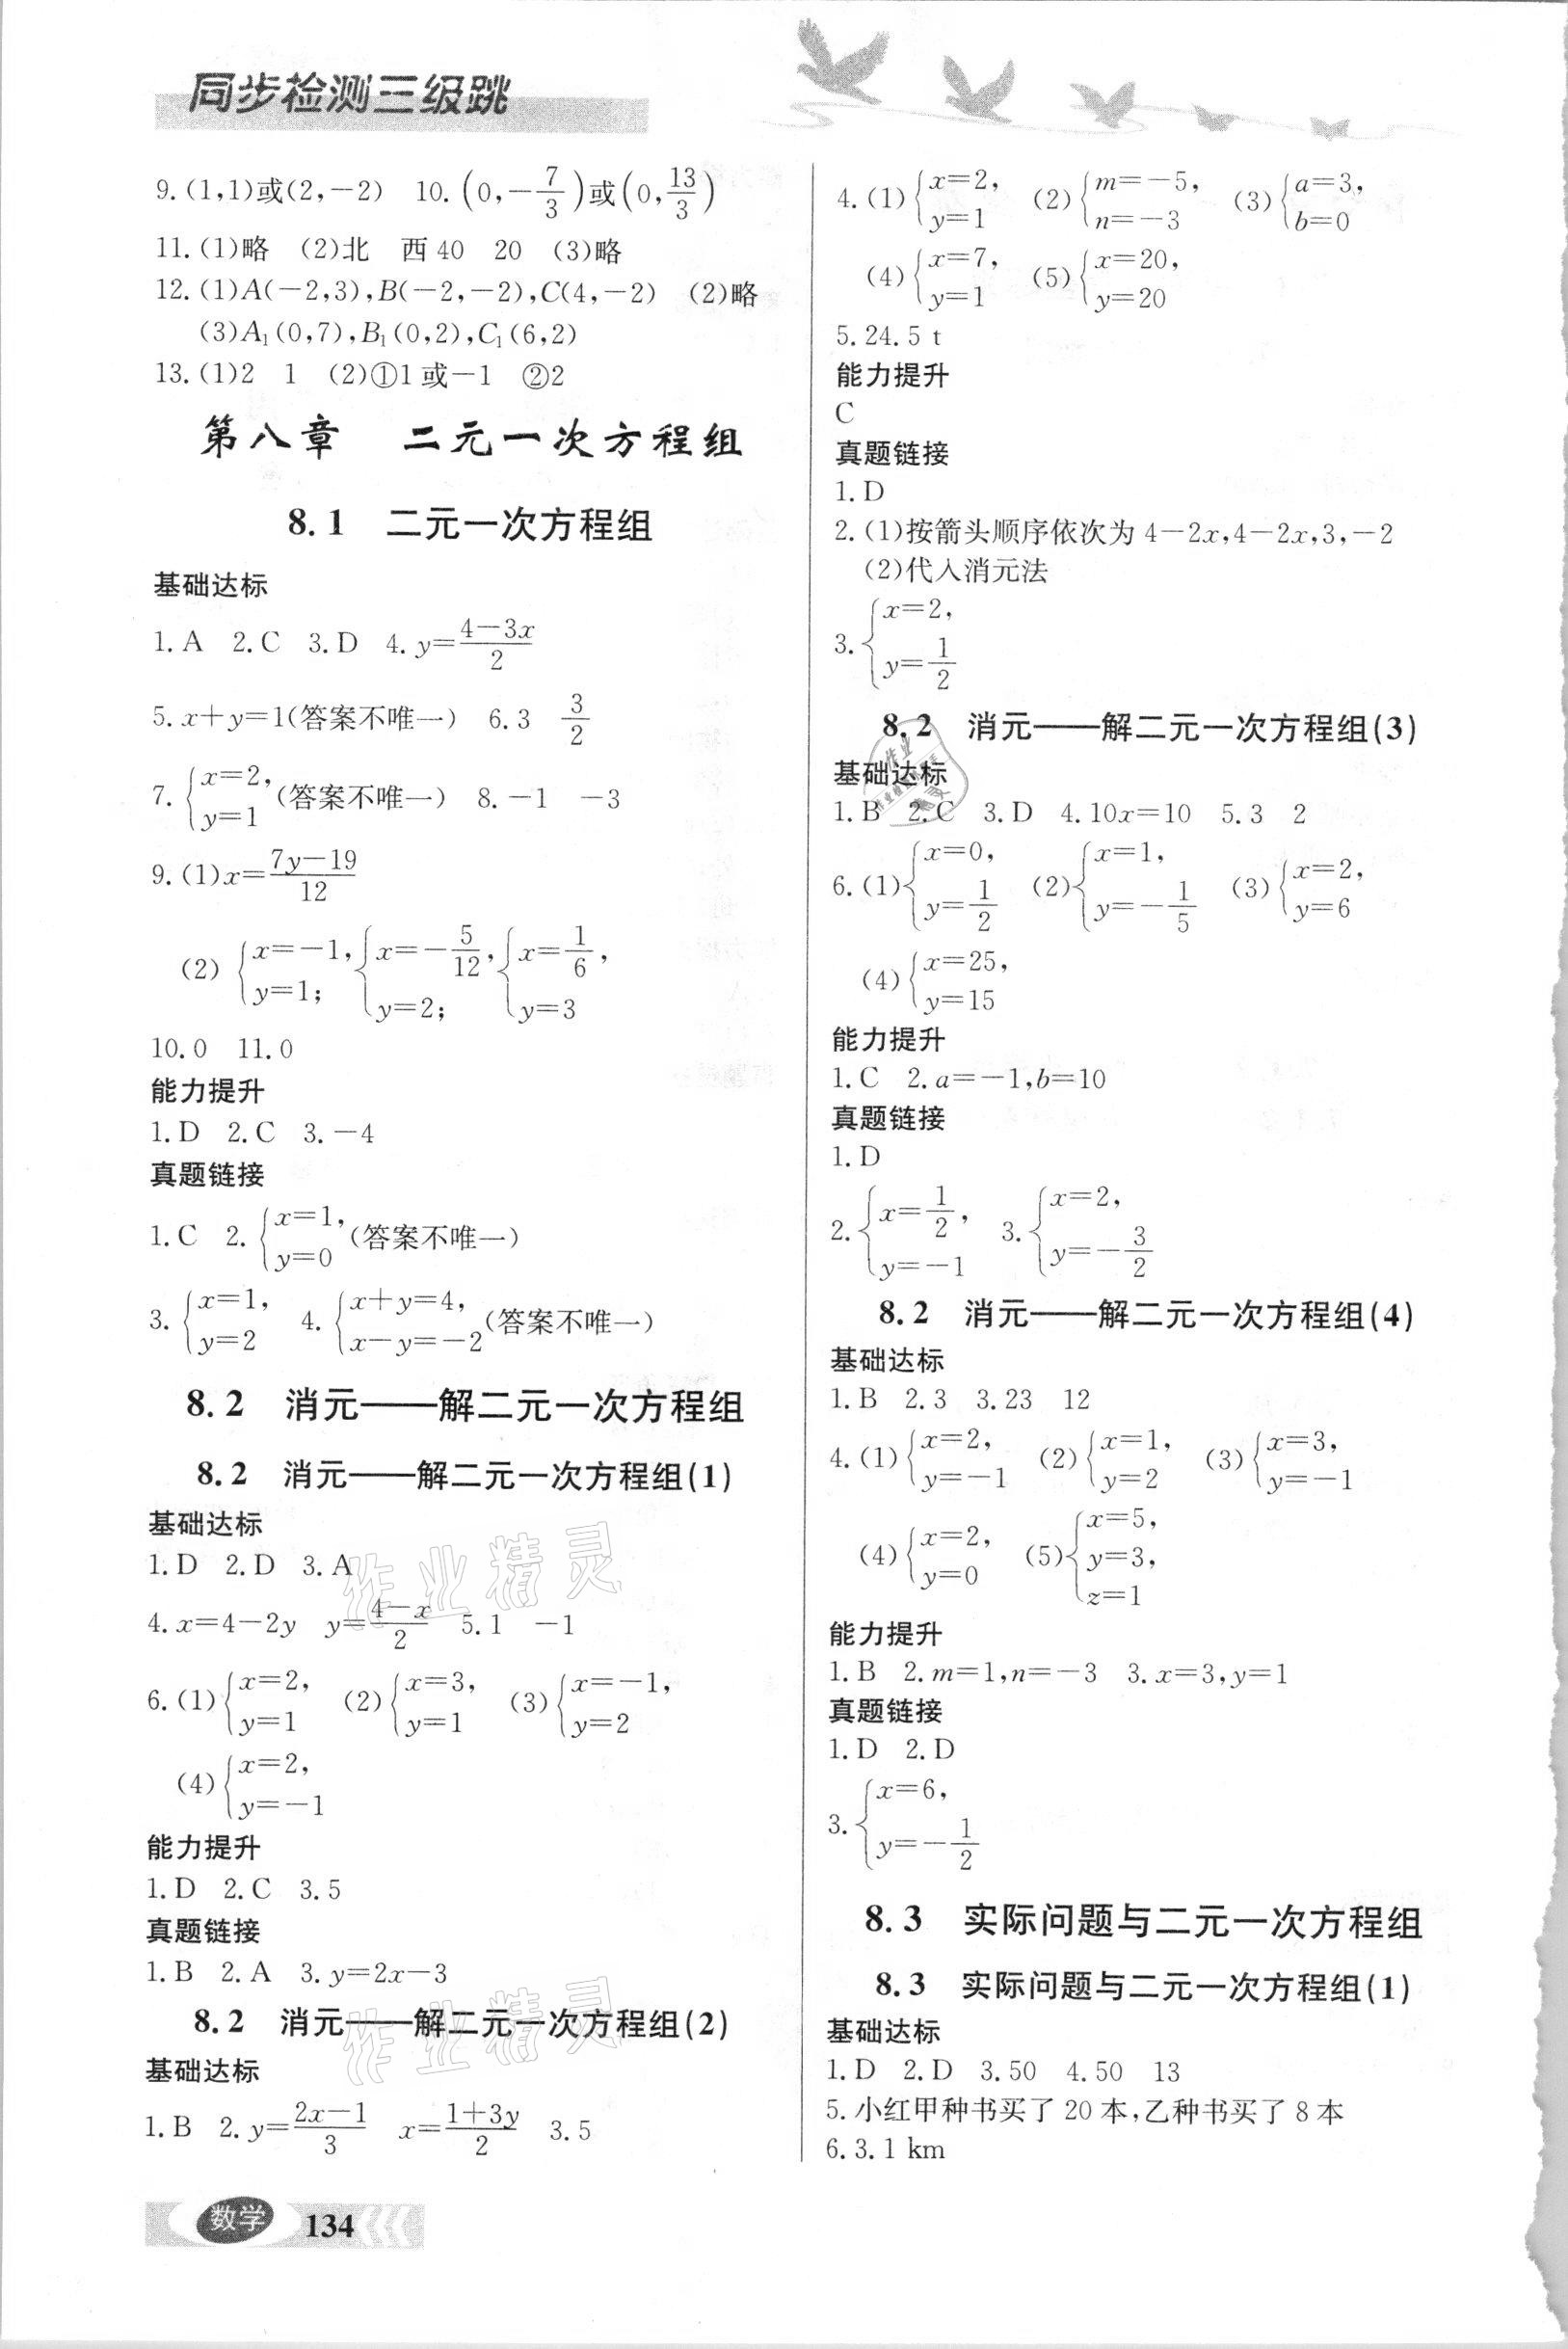 同步检测三级跳
9.(1,1)或(2,-2)  10.(0,-7/3)或(0,13/3)
11.(1)略  (2)北  西40  20  (3)略
12.(1)A(-2,3),B(-2,-2),C(4,-2)  (2)略
(3)A₁(0,7),B₁(0,2),C₁(6,2)
13.(1)2  1  (2)①1或-1  ②2
第八章  二元一次方程组
8.1  二元一次方程组
基础达标
1.A  2.C  3.D  4.y=(4-3x)/2
5.x+y=1(答案不唯一)  6.3  3/2
7.{x=2, y=1 (答案不唯一)  8.-1  -3
9.(1)x=(7y-19)/12
(2){x=-1, y=1; {x=-5/12, y=2; {x=1/6, y=3
10.0  11.0
能力提升
1.D  2.C  3.-4
真题链接
1.C  2.{x=1, y=0 (答案不唯一)
3.{x=1, y=2  4.{x+y=4, x-y=-2 (答案不唯一)
8.2  消元——解二元一次方程组
8.2  消元——解二元一次方程组(1)
基础达标
1.D  2.D  3.A
4.x=4-2y  y=(4-x)/2  5.1  -1
6.(1){x=2, y=1  (2){x=3, y=1  (3){x=-1, y=2
(4){x=2, y=-1
能力提升
1.D  2.C  3.5
真题链接
1.B  2.A  3.y=2x-3
8.2  消元——解二元一次方程组(2)
基础达标
1.B  2.y=(2x-1)/3  x=(1+3y)/2  3.5
4.(1){x=2, y=1  (2){m=-5, n=-3  (3){a=3, b=0
(4){x=7, y=1  (5){x=20, y=20
5.24.5 t
能力提升
C
真题链接
1.D
2.(1)按箭头顺序依次为4-2x,4-2x,3,-2
(2)代入消元法
3.{x=2, y=1/2
8.2  消元——解二元一次方程组(3)
基础达标
1.B  2.C  3.D  4.10x=10  5.3  2
6.(1){x=0, y=1/2  (2){x=1, y=-1/5  (3){x=2, y=6
(4){x=25, y=15
能力提升
1.C  2.a=-1,b=10
真题链接
1.D
2.{x=1/2, y=-1  3.{x=2, y=-3/2
8.2  消元——解二元一次方程组(4)
基础达标
1.B  2.3  3.23  12
4.(1){x=2, y=-1  (2){x=1, y=2  (3){x=3, y=-1
(4){x=2, y=0  (5){x=5, y=3, z=1
能力提升
1.B  2.m=1,n=-3  3.x=3,y=1
真题链接
1.D  2.D
3.{x=6, y=-1/2
8.3  实际问题与二元一次方程组
8.3  实际问题与二元一次方程组(1)
基础达标
1.D  2.D  3.50  4.50  13
5.小红甲种书买了20本,乙种书买了8本
6.3.1 km
数学 134
作业精灵
作业精灵